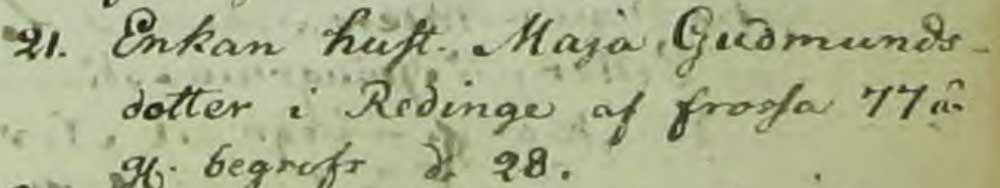 21. Enkan hust. Maja Gudmunds-
dotter i Redinge af frossa 77 år
g. begrofs d. 28.